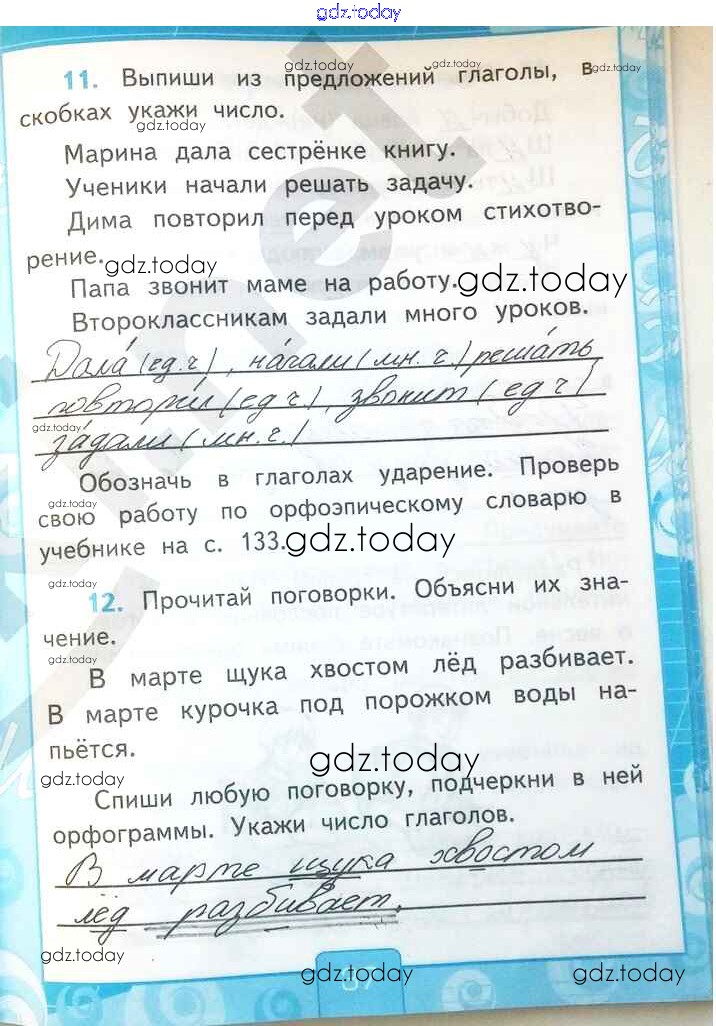 gdz.today
11. Выпиши из предложений глаголы, в
gdz.today
gdz.today
gdz.today
скобках укажи число.
gdz.today
Марина дала сестрёнке книгу.
Ученики начали решать задачу.
Дима повторил перед уроком стихотво-
рение.
gdz.today
gdz.today
Папа звонит маме на работу.
Второклассникам задали много уроков.
Дала́ (ед.ч), на́чали (мн. ч.) реша́ть
повтори́л (ед ч.), звони́т (ед ч)
gdz.today
за́дали (мн.ч.)
Обозначь в глаголах ударение. Проверь
gdz.today
свою работу по орфоэпическому словарю в
учебнике на с. 133.
gdz.today
gdz.today
12. Прочитай поговорки. Объясни их зна-
чение.
gdz.today
В марте щука хвостом лёд разбивает.
В марте курочка под порожком воды на-
пьётся.
gdz.today
gdz.today
Спиши любую поговорку, подчеркни в ней
орфограммы. Укажи число глаголов.
В марте щука хвостом
лёд разбивает.
gdz.today
gdz.today
gdz.today
37